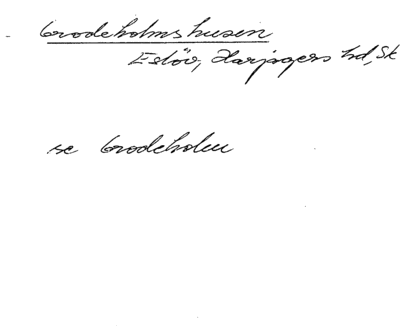 Grodeholmshusen
Eslöv, Harjagers hd, Sk
se Grodeholm